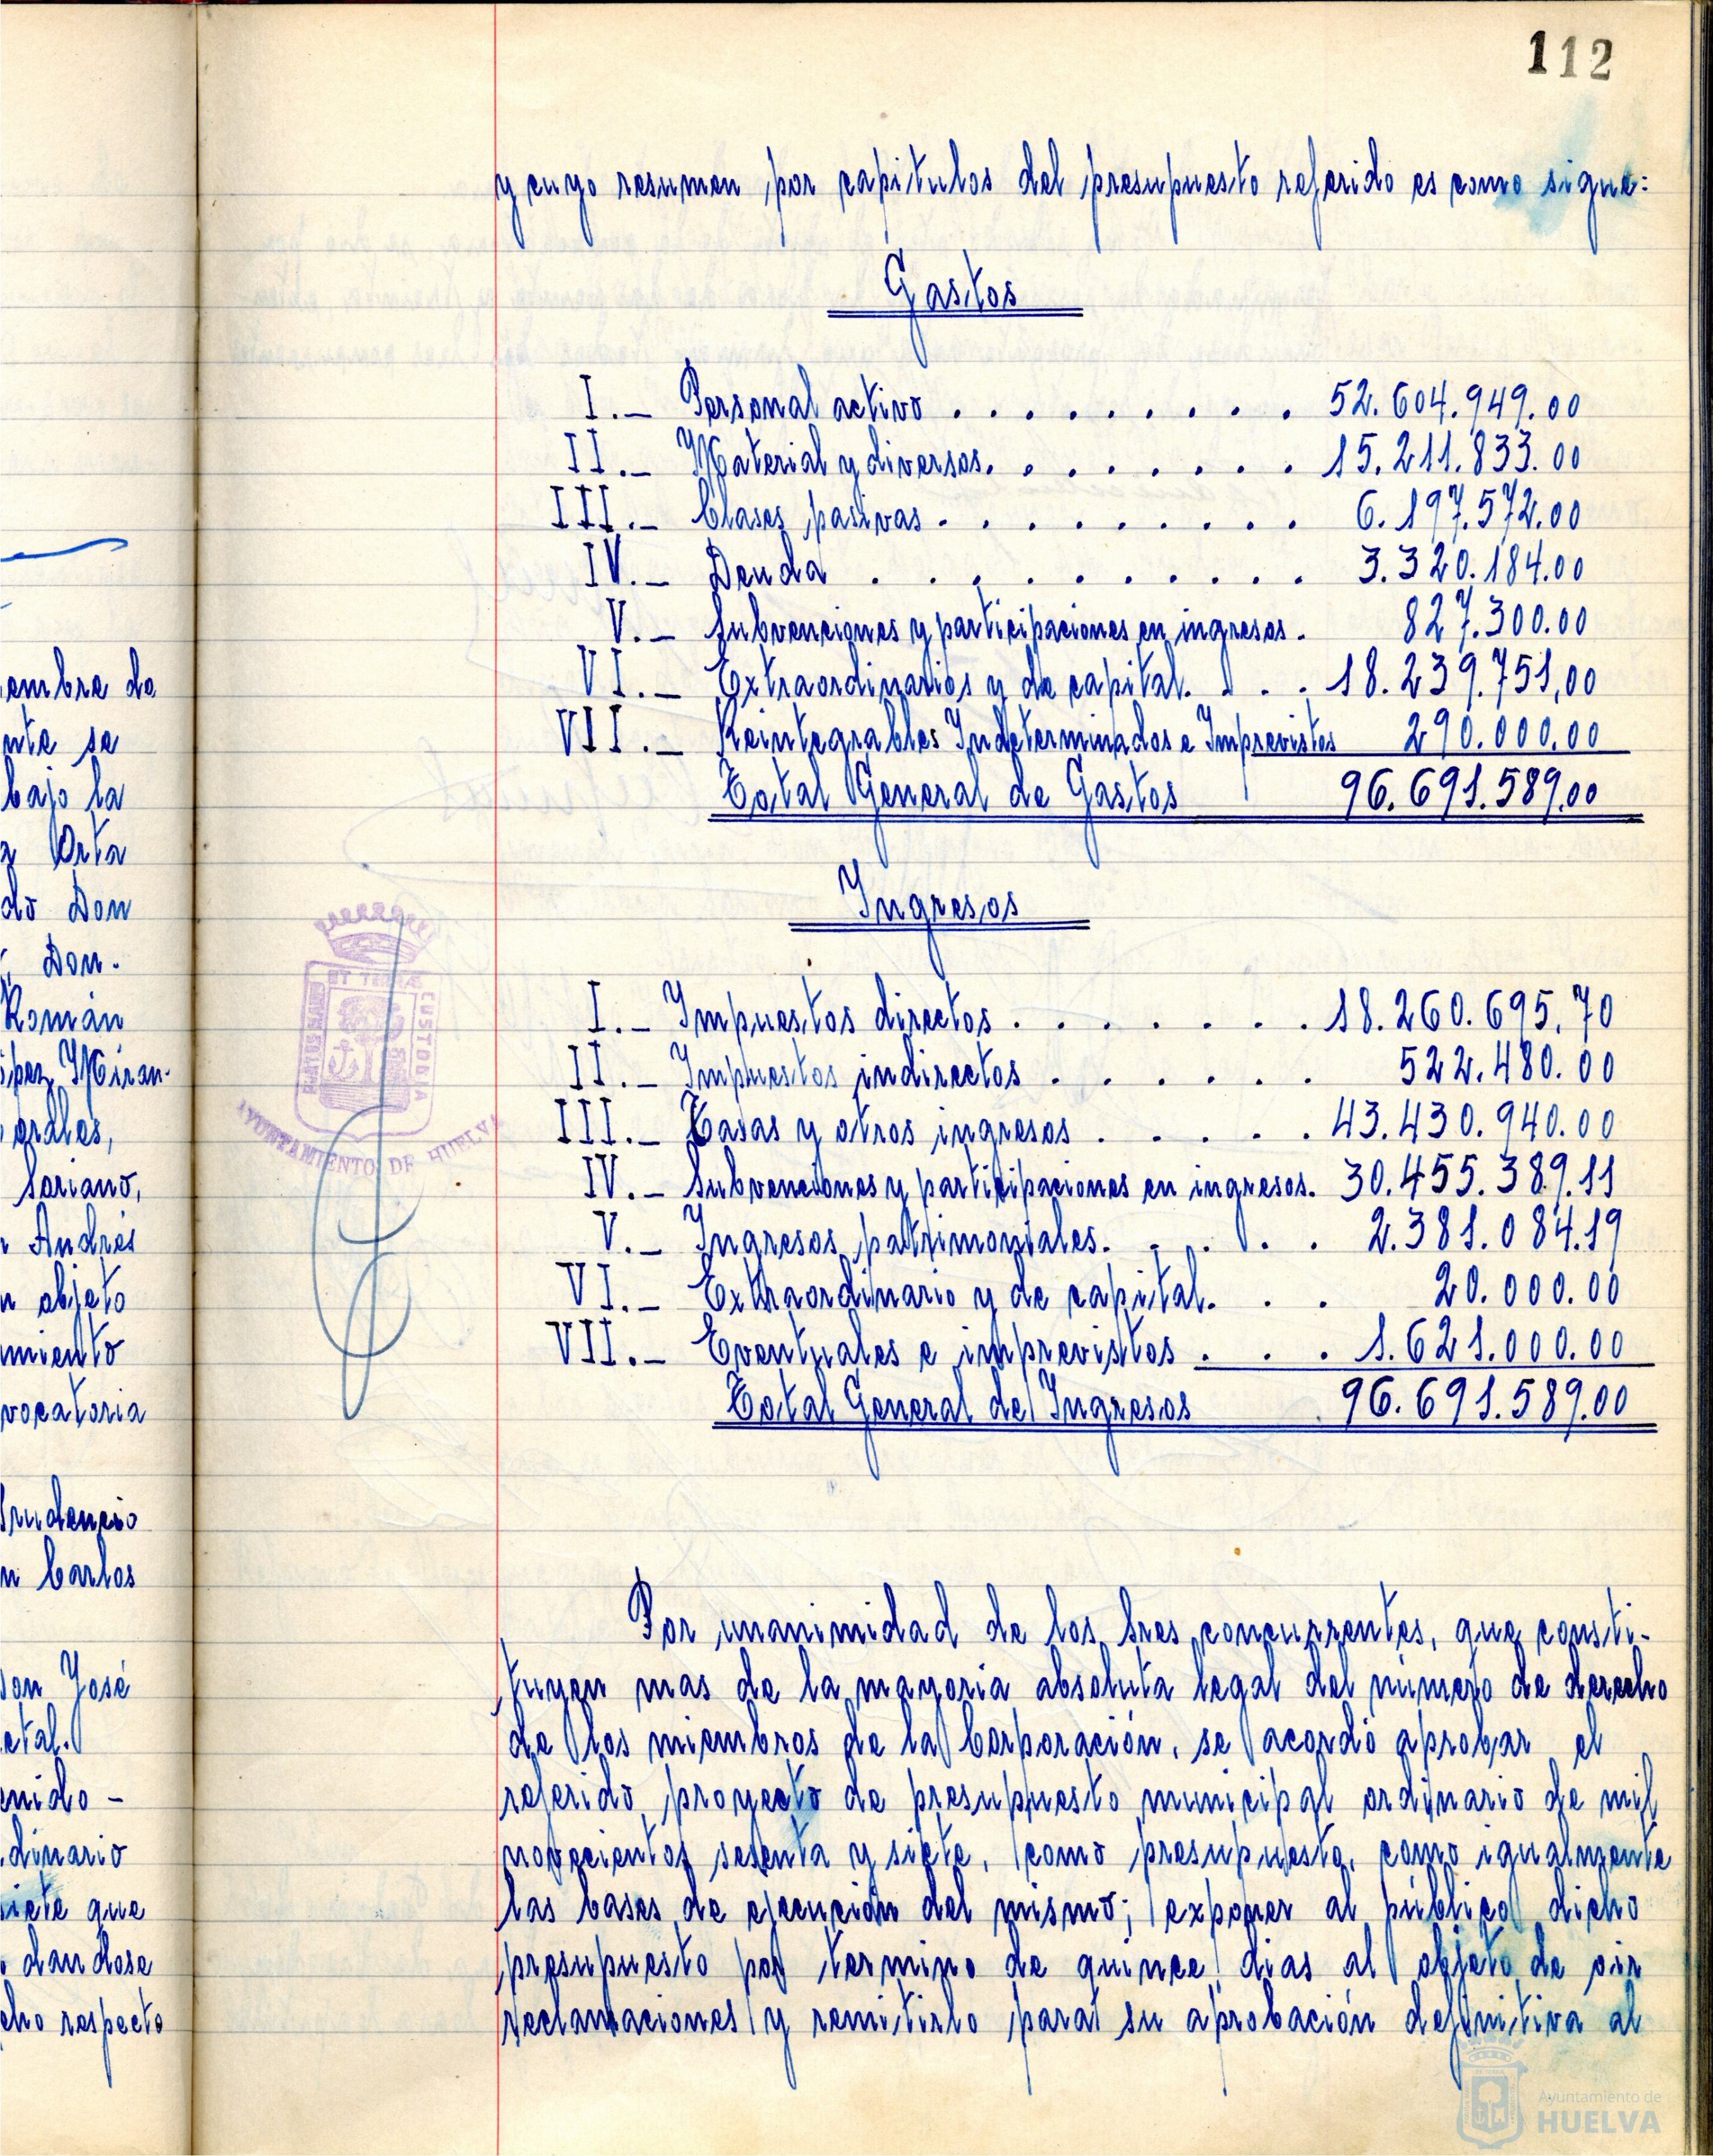 112
y cuyo resumen por capitulos del presupuesto referido es como sigue:
Gastos
I.- Personal activo . . . . . . . . . 52.604.949.00
II.- Material y diversos. . . . . . . . 15.211.833.00
III.- Clases pasivas . . . . . . . . . 6.197.572.00
IV.- Deuda . . . . . . . . . . 3.320.184.00
V.- Subvenciones y participaciones en ingresos. 827.300.00
VI.- Extraordinarios y de capital. . . . 18.239.751,00
VII.- Reintegrables Indeterminados e Imprevistos 290.000.00
Total General de Gastos 96.691.589.00
Ingresos
I.- Impuestos directos . . . . . . . 18.260.695,70
II.- Impuestos indirectos . . . . . . 522.480.00
III.- Tasas y otros ingresos . . . . . 43.430.940.00
IV.- Subvenciones y participaciones en ingresos. 30.455.389.11
V.- Ingresos patrimoniales. . . . . 2.381.084.19
VI.- Extraordinario y de capital. . . 20.000.00
VII.- Eventuales e imprevistos . . . 1.621.000.00
Total General de Ingresos 96.691.589.00
Por unanimidad de los Sres concurrentes, que consti-
tuyen mas de la mayoria absoluta legal del número de derecho
de los miembros de la Corporación, se acordó aprobar el
referido proyecto de presupuesto municipal ordinario de mil
novecientos sesenta y siete, como presupuesto, como igualmente
las bases de ejecución del mismo; exponer al público dicho
presupuesto por termino de quince dias al objeto de oir
reclamaciones y remitirlo para su aprobación definitiva al
embre de
nte se
bajo la
Orta
do Don
Don.
Román
ipez Miran-
orales,
Soriano,
Andrés
n objeto
miento
vocatoria
Prudencio
n Carlos
Don José
etal.
enido -
dinario
iete que
dandose
cho respecto
PORTUS MARIS ET TERRÆ CUSTODIA
AYUNTAMIENTO DE HUELVA
Ayuntamiento de
HUELVA